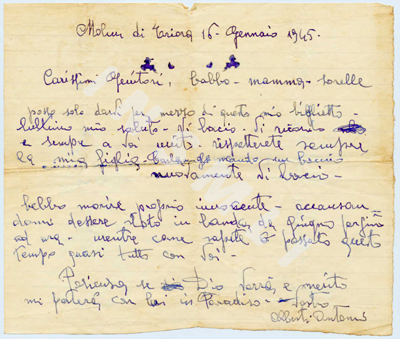 Molini di Triora 16 - Gennaio 1945 -
Carissimi Genitori, babbo - mamma - sorelle
posso solo darvi per mezzo di questo mio biglietto
l'ultimo mio saluto - vi bacio - vi ricordo
e sempre a voi unito - rispetterete sempre
la mia figlia mando un bacio
nuovamente vi bacio -
babbo morire proprio innocente - accusan
domi dessere stato in banda da giugno
ad ora - mentre come sapete ò passato questo
tempo quasi tutto con voi -
Pazienza se Dio vorrà e merito
mi porterà con lui in Paradiso - vostro
Alberti Antonio